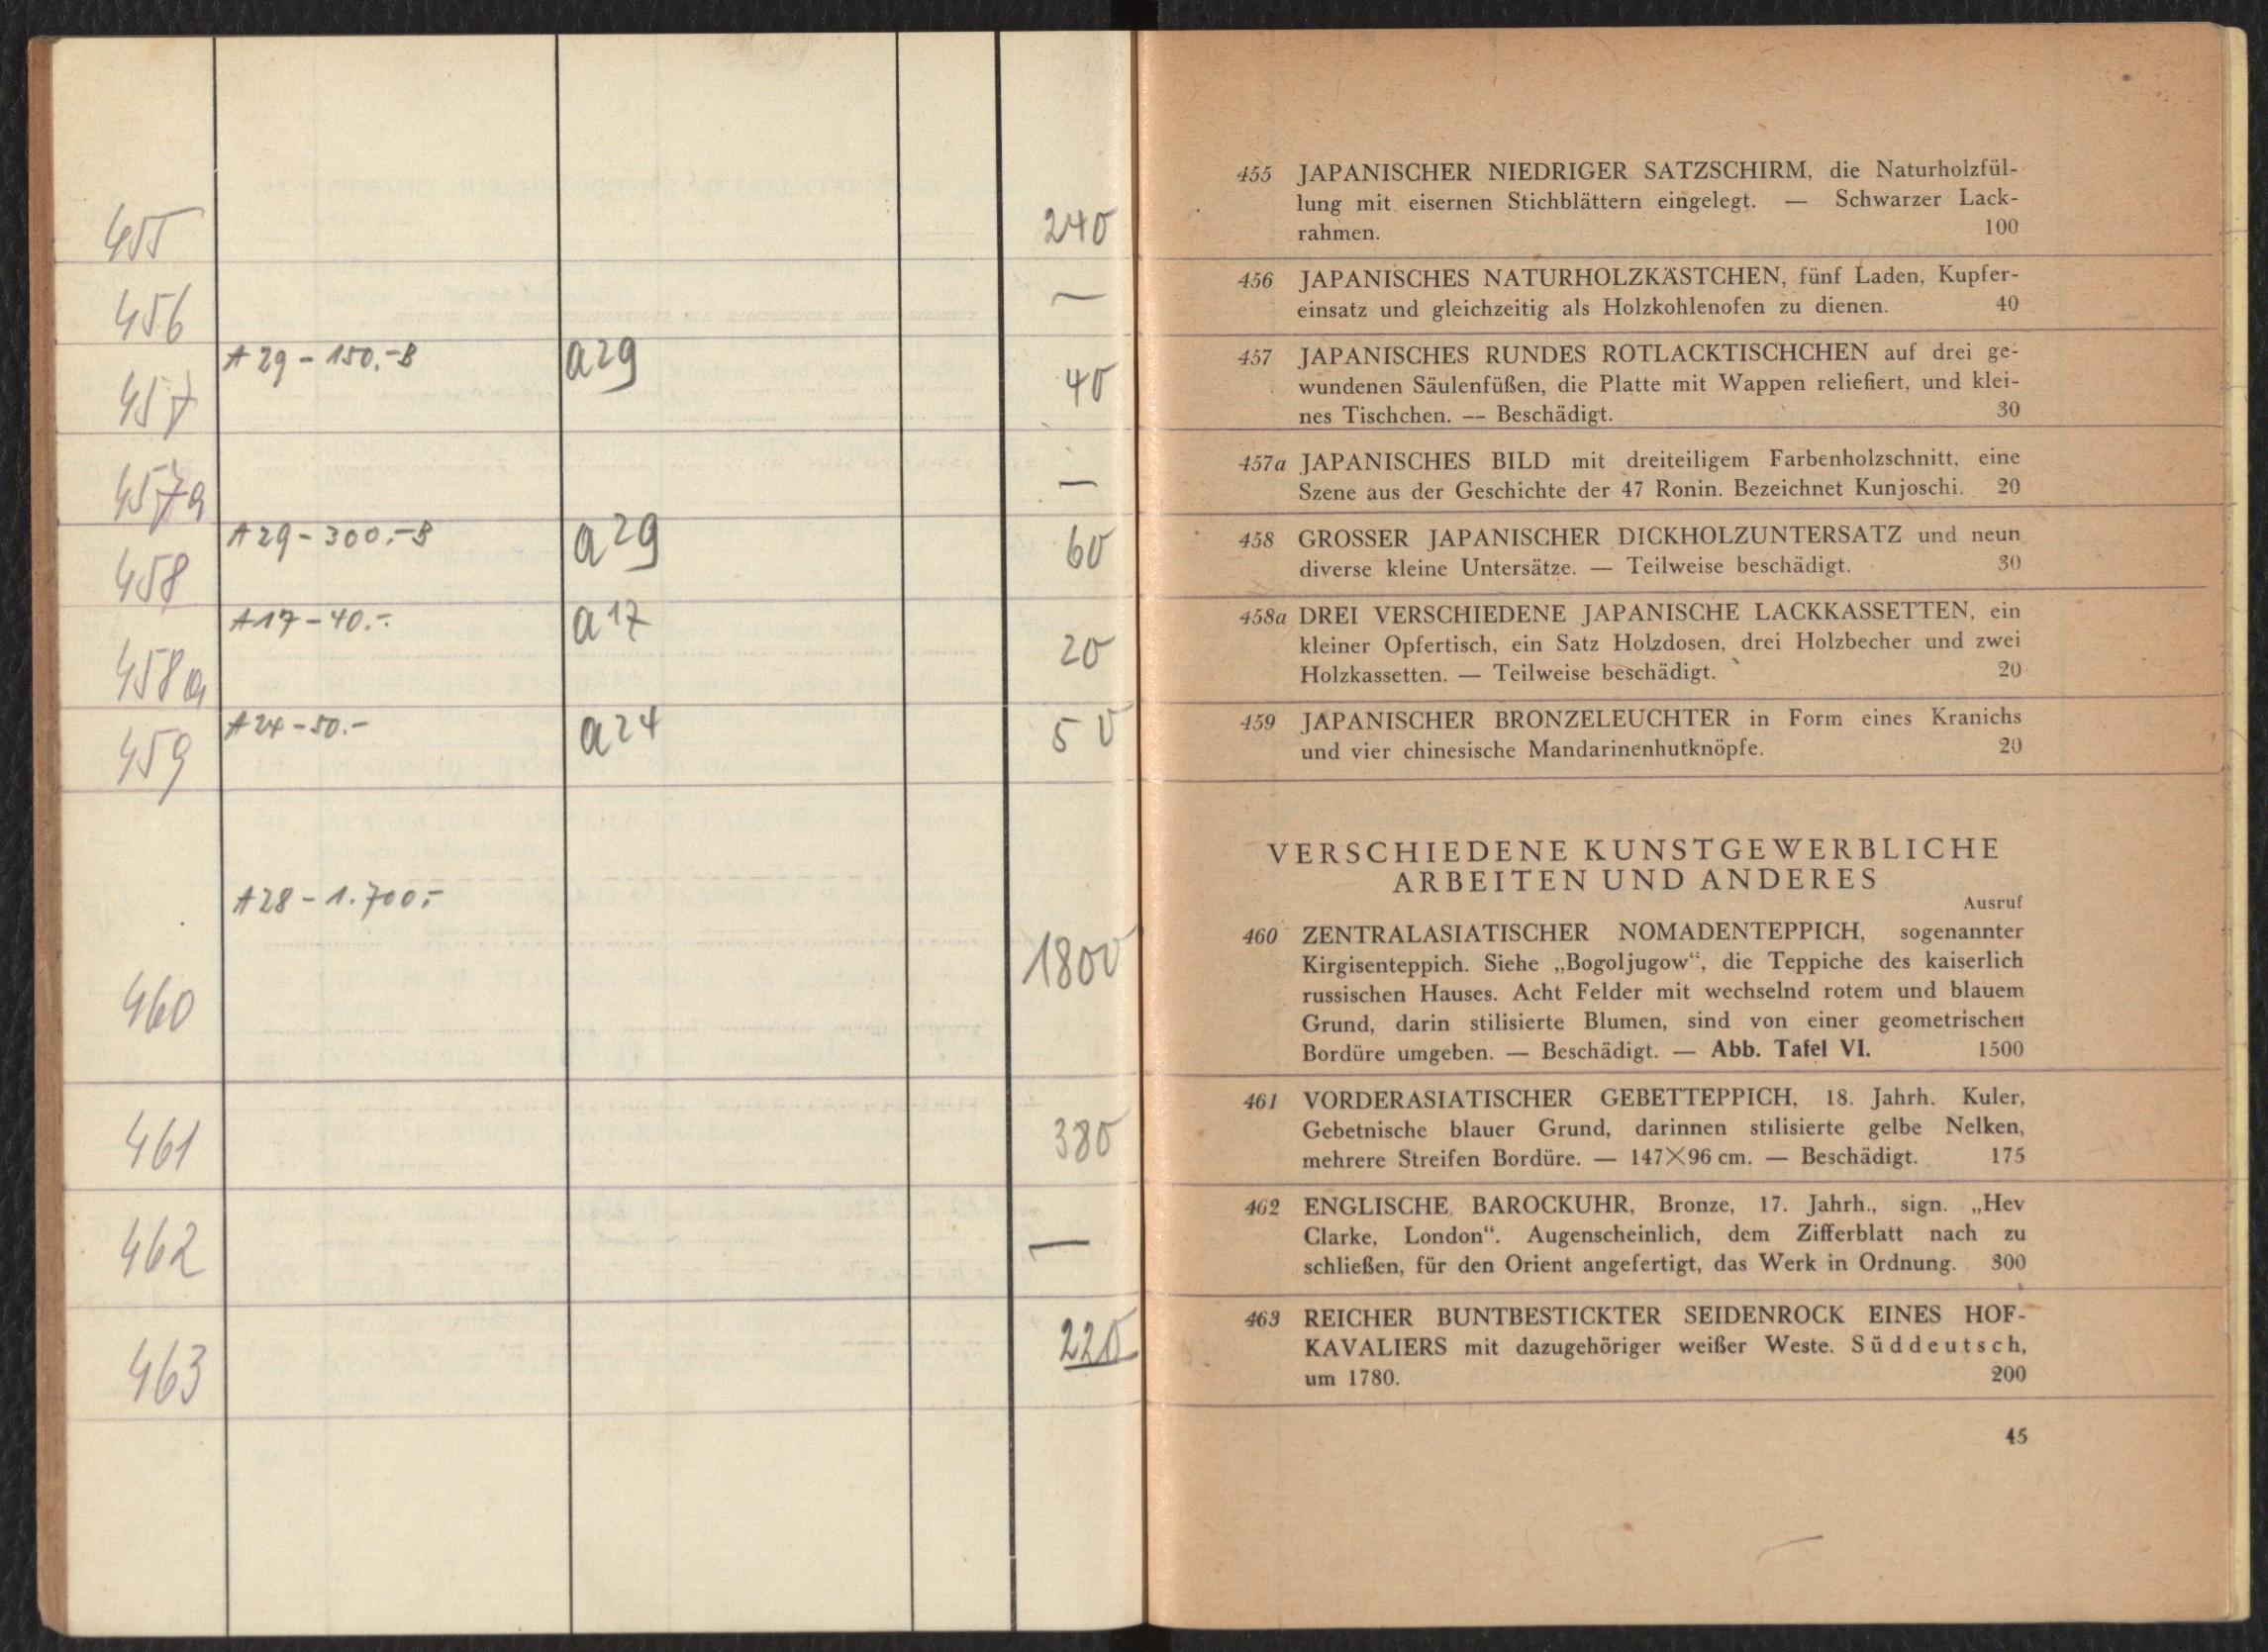 455 240
456 —
A 29 - 150.- B a 29
457 40
457a —
A 29 - 300.- B a 29
458 60
A 17 - 40.- a 17
458a 20
A 24 - 50.- a 24
459 50
A 28 - 1.700.-
460 1800
461 380
462 —
463 220
455 JAPANISCHER NIEDRIGER SATZSCHIRM, die Naturholzfül-
lung mit eisernen Stichblättern eingelegt. — Schwarzer Lack-
rahmen. 100
456 JAPANISCHES NATURHOLZKÄSTCHEN, fünf Laden, Kupfer-
einsatz und gleichzeitig als Holzkohlenofen zu dienen. 40
457 JAPANISCHES RUNDES ROTLACKTISCHCHEN auf drei ge-
wundenen Säulenfüßen, die Platte mit Wappen reliefiert, und klei-
nes Tischchen. — Beschädigt. 30
457a JAPANISCHES BILD mit dreiteiligem Farbenholzschnitt, eine
Szene aus der Geschichte der 47 Ronin. Bezeichnet Kunjoschi. 20
458 GROSSER JAPANISCHER DICKHOLZUNTERSATZ und neun
diverse kleine Untersätze. — Teilweise beschädigt. 30
458a DREI VERSCHIEDENE JAPANISCHE LACKKASSETTEN, ein
kleiner Opfertisch, ein Satz Holzdosen, drei Holzbecher und zwei
Holzkassetten. — Teilweise beschädigt. 20
459 JAPANISCHER BRONZELEUCHTER in Form eines Kranichs
und vier chinesische Mandarinenhutknöpfe. 20
VERSCHIEDENE KUNSTGEWERBLICHE
ARBEITEN UND ANDERES
Ausruf
460 ZENTRALASIATISCHER NOMADENTEPPICH, sogenannter
Kirgisenteppich. Siehe „Bogoljugow“, die Teppiche des kaiserlich
russischen Hauses. Acht Felder mit wechselnd rotem und blauem
Grund, darin stilisierte Blumen, sind von einer geometrischen
Bordüre umgeben. — Beschädigt. — Abb. Tafel VI. 1500
461 VORDERASIATISCHER GEBETTEPPICH, 18. Jahrh. Kuler,
Gebetnische blauer Grund, darinnen stilisierte gelbe Nelken,
mehrere Streifen Bordüre. — 147×96 cm. — Beschädigt. 175
462 ENGLISCHE BAROCKUHR, Bronze, 17. Jahrh., sign. „Hev
Clarke, London“. Augenscheinlich, dem Zifferblatt nach zu
schließen, für den Orient angefertigt, das Werk in Ordnung. 300
463 REICHER BUNTBESTICKTER SEIDENROCK EINES HOF-
KAVALIERS mit dazugehöriger weißer Weste. Süddeutsch,
um 1780. 200
45